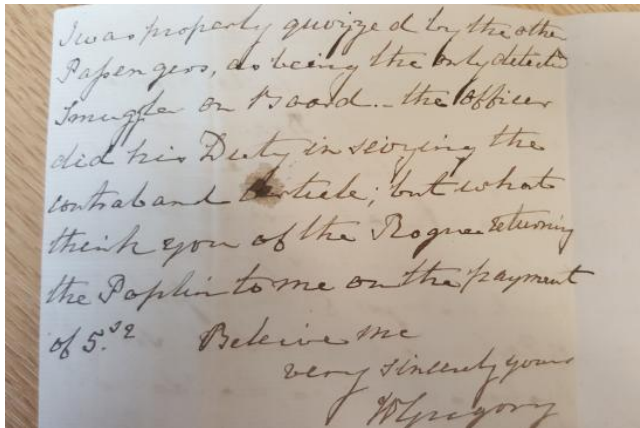 I was properly quizzed by the other
Passengers, as being the only detected
Smuggler on Board. - the Officer
did his Duty in seizing the
contraband Article; but what
think you of the Rogue returning
the Poplin to me on the payment
of 5.s Beleive me
very sincerely yours
W Gregory